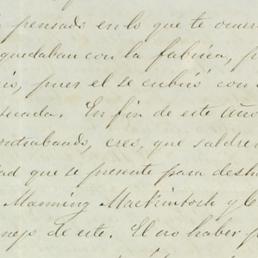 pensado en lo que te ocurr
quedaban con la fabrica, p
is, pues el se cubrió con
secada. En fin de este Año
contrabando, eres, que saldre
dad que se presente para desh
Manning Mackintosh y C
nejo de este. El no haber p